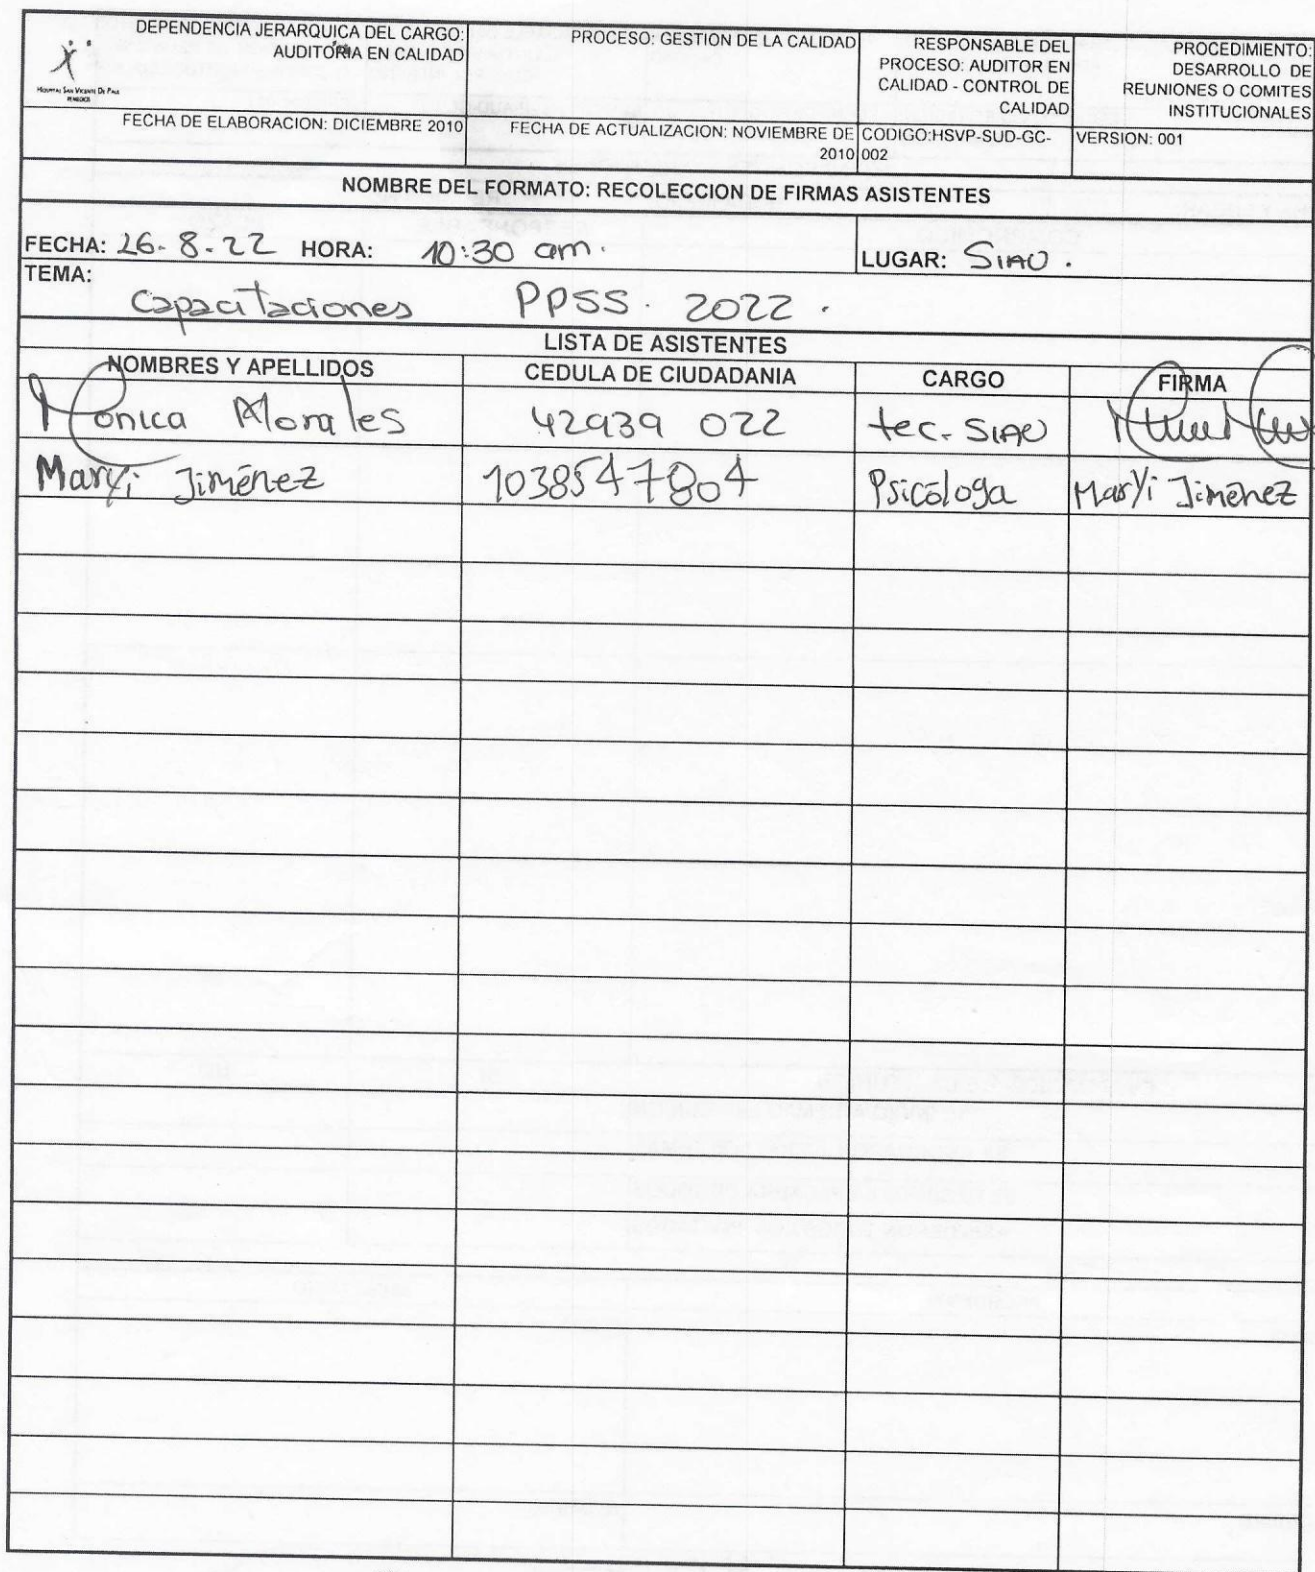 HOSPITAL SAN VICENTE DE PAUL
REMEDIOS
DEPENDENCIA JERARQUICA DEL CARGO:
AUDITORIA EN CALIDAD
PROCESO: GESTION DE LA CALIDAD
RESPONSABLE DEL
PROCESO: AUDITOR EN
CALIDAD - CONTROL DE
CALIDAD
PROCEDIMIENTO:
DESARROLLO DE
REUNIONES O COMITES
INSTITUCIONALES
FECHA DE ELABORACION: DICIEMBRE 2010
FECHA DE ACTUALIZACION: NOVIEMBRE DE
2010
CODIGO:HSVP-SUD-GC-
002
VERSION: 001
NOMBRE DEL FORMATO: RECOLECCION DE FIRMAS ASISTENTES
FECHA: 26-8-22 HORA: 10:30 am.
LUGAR: SIAU.
TEMA:
Capacitaciones PPSS. 2022.
LISTA DE ASISTENTES
NOMBRES Y APELLIDOS CEDULA DE CIUDADANIA CARGO FIRMA
Mónica Morales 42939 022 tec. SIAU
Maryi Jiménez 1038547804 Psicóloga Maryi Jiménez